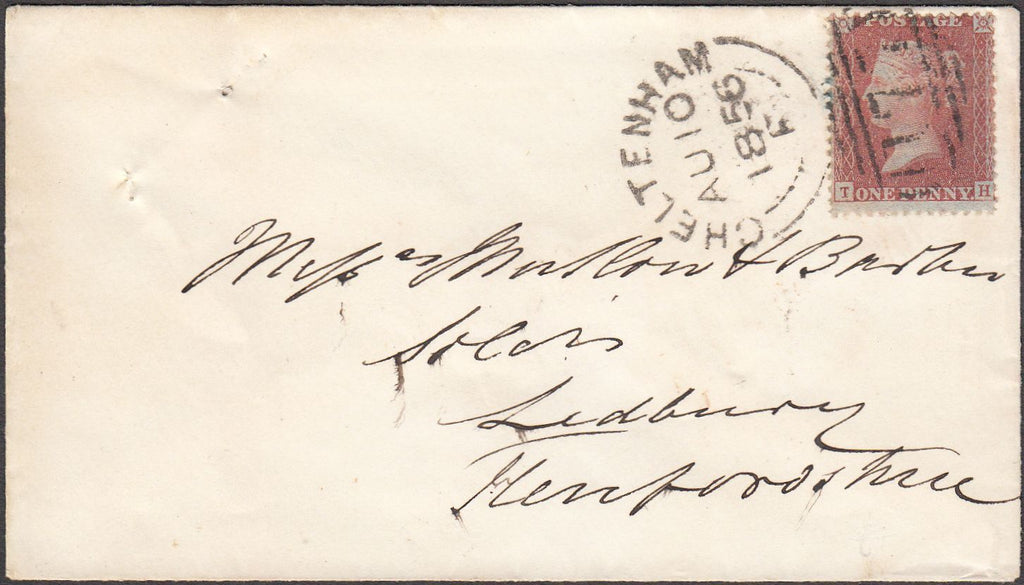 POSTAGE
T ONE PENNY H
CHELTENHAM
AU 10
1856
Messrs & 
Solrs
Ledbury
Herefordshire